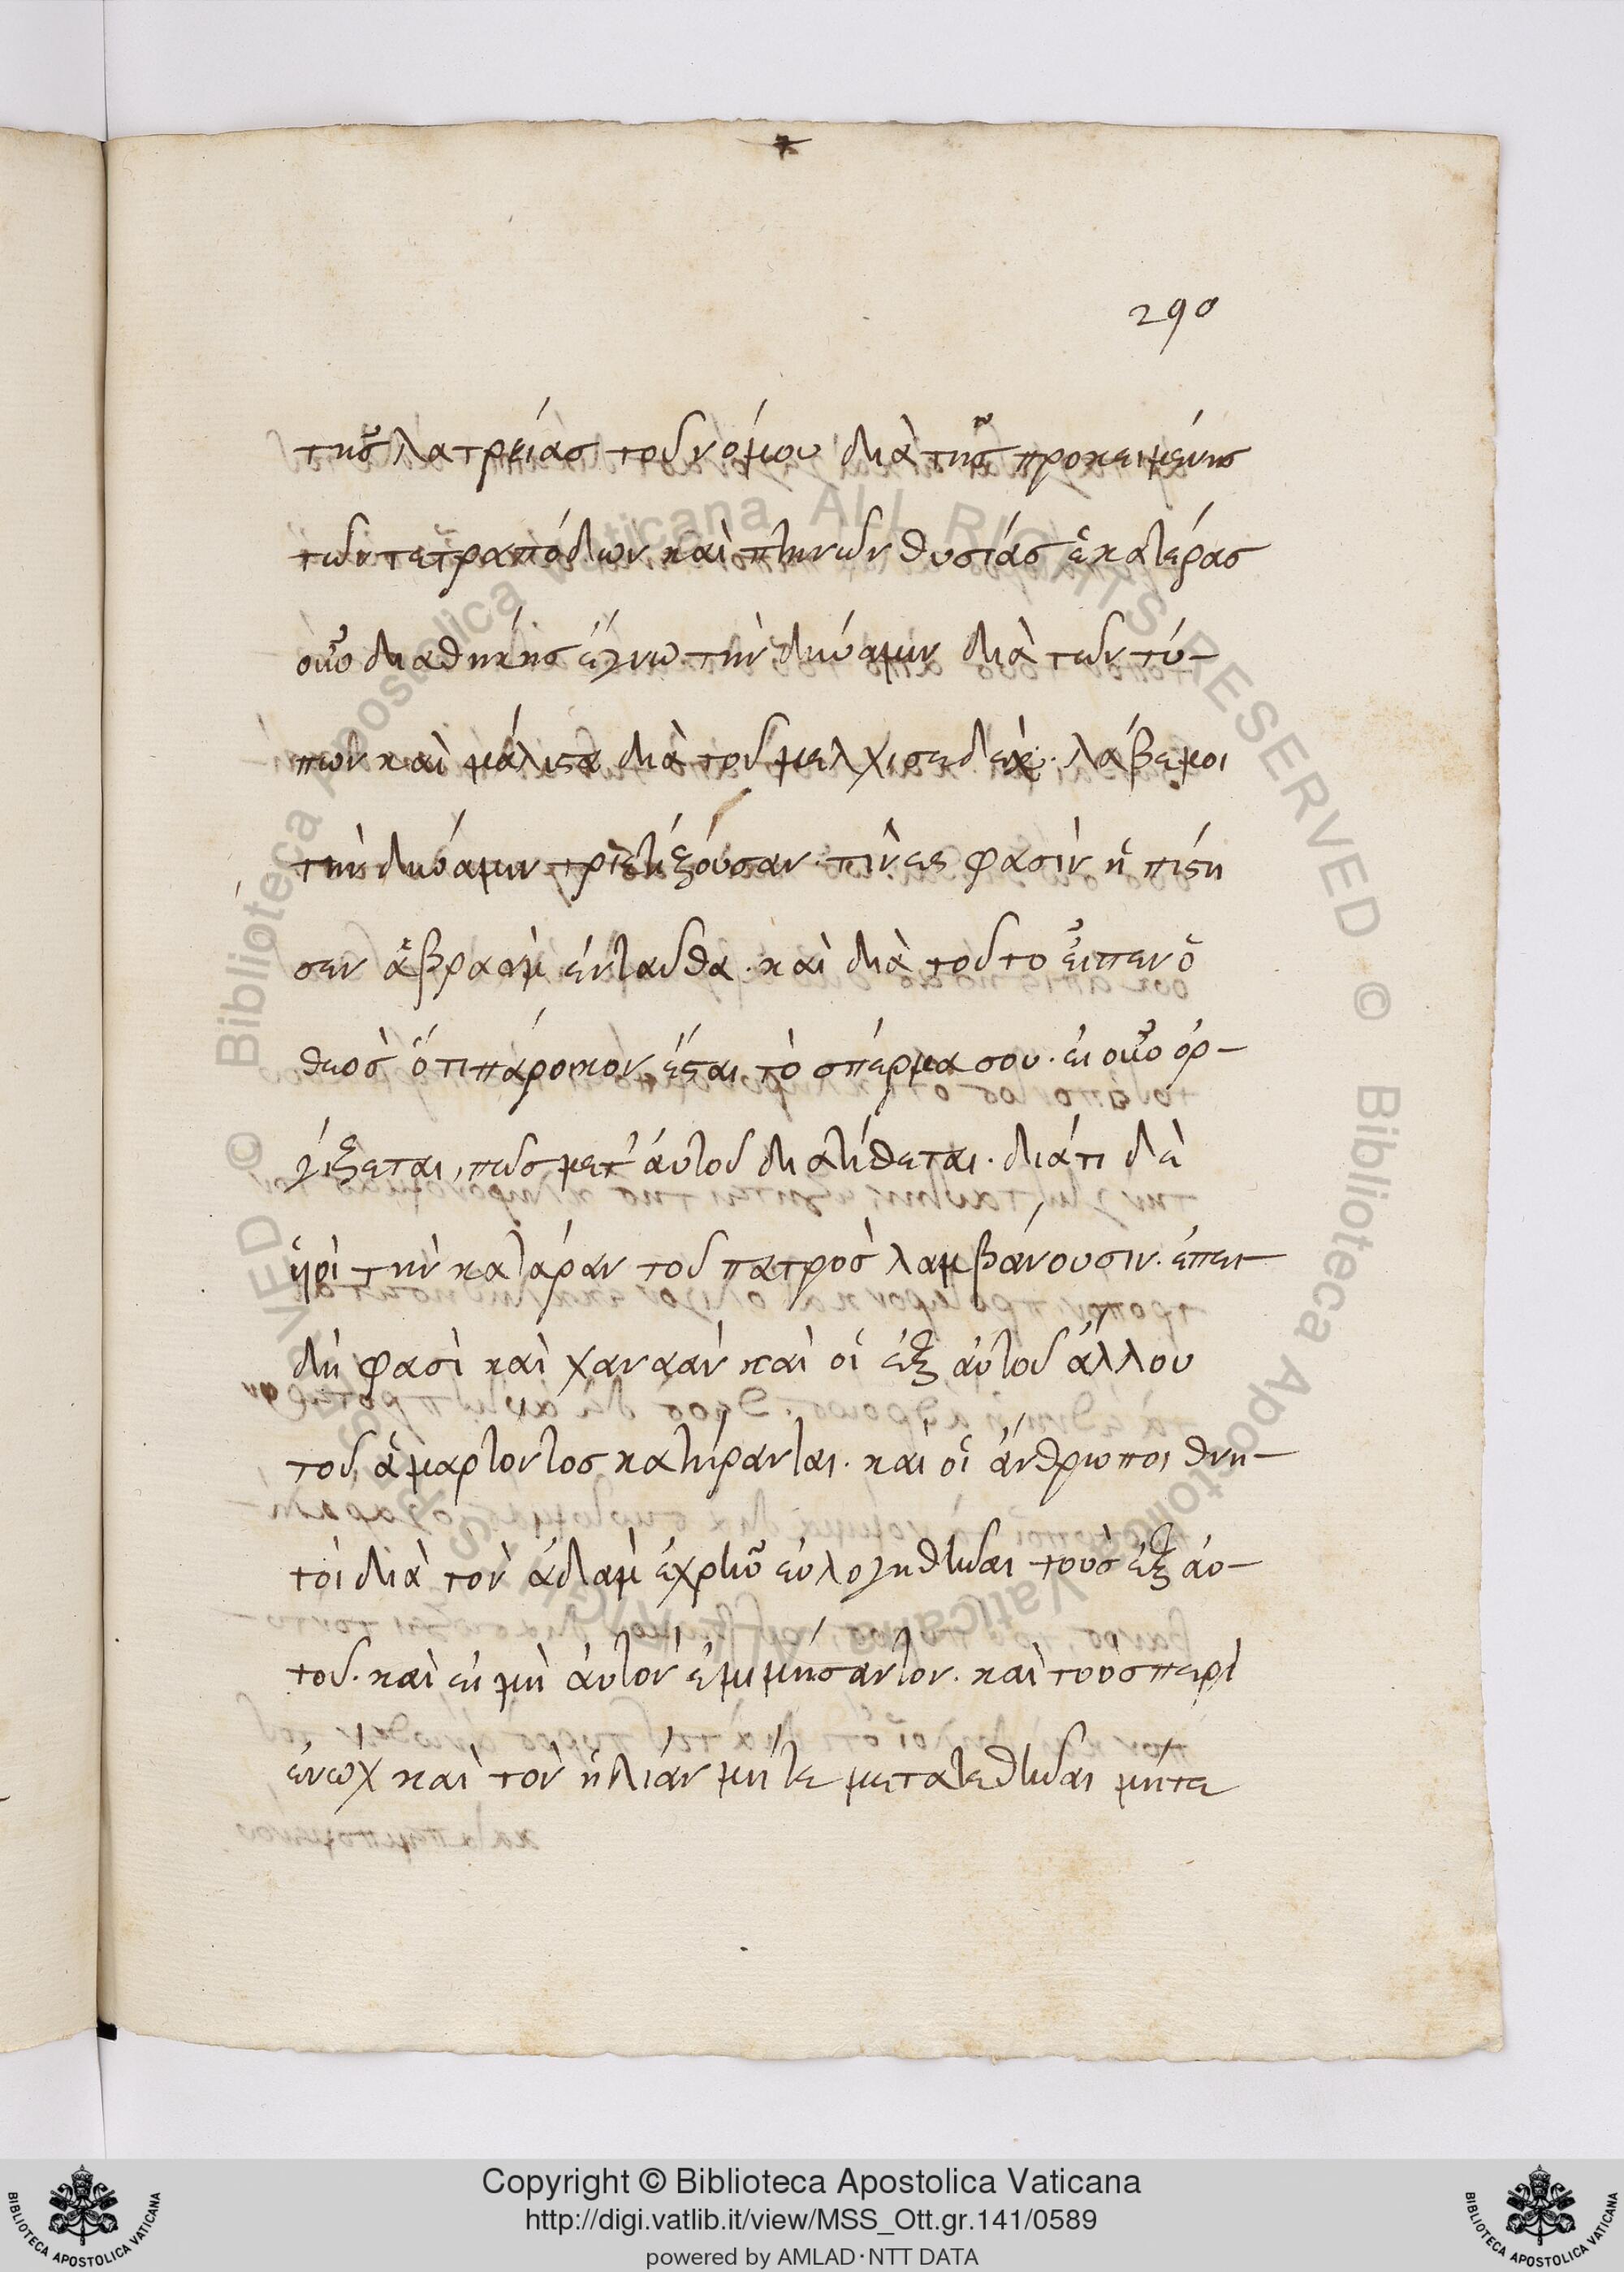 290
τῆς λατρείας τοῦ νόμου διὰ τῆς προκειμένης
τῶν τετραπόδων καὶ πτηνῶν θυσίας ἑκατέρας
οὖν διαθήκης ἔγνω τὴν δύναμιν διὰ τῶν τύ-
πων καὶ μάλιστα διὰ τοῦ μελχισεδέκ. λάβε μοι
τὴν δύναμιν τινές φασιν ἠπίστη
σεν ἁβραὰμ ἐνταῦθα. καὶ διὰ τοῦτο εἶπεν ὁ
θεὸς ὅτι πάροικον ἔσται τὸ σπέρμα σου. εἰ οὖν ὀρ-
γίζεται, πῶς μετ' αὐτοῦ διατίθεται. διάτι δὲ
υἱοὶ τὴν κατάραν τοῦ πατρὸς λαμβάνουσιν. ἐπει-
δή φασι καὶ χαναὰν καὶ οἱ ἐξ αὐτοῦ ἄλλου
τοῦ ἁμαρτόντος κατήρανται. καὶ οἱ ἄνθρωποι θνη-
τοὶ διὰ τὸν ἀδὰμ ἐχρῆν εὐλογηθῆναι τοὺς ἐξ αὐ-
τοῦ. καὶ εἰ μὴ αὐτὸν ἐμιμήσαντον. καὶ τοὺς περὶ
ἐνὼχ καὶ τὸν ἡλίαν μήτε μετατεθῆναι μήτε
Copyright © Biblioteca Apostolica Vaticana
http://digi.vatlib.it/view/MSS_Ott.gr.141/0589
powered by AMLAD·NTT DATA